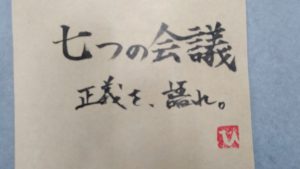 七つの会議
正義を、語れ。